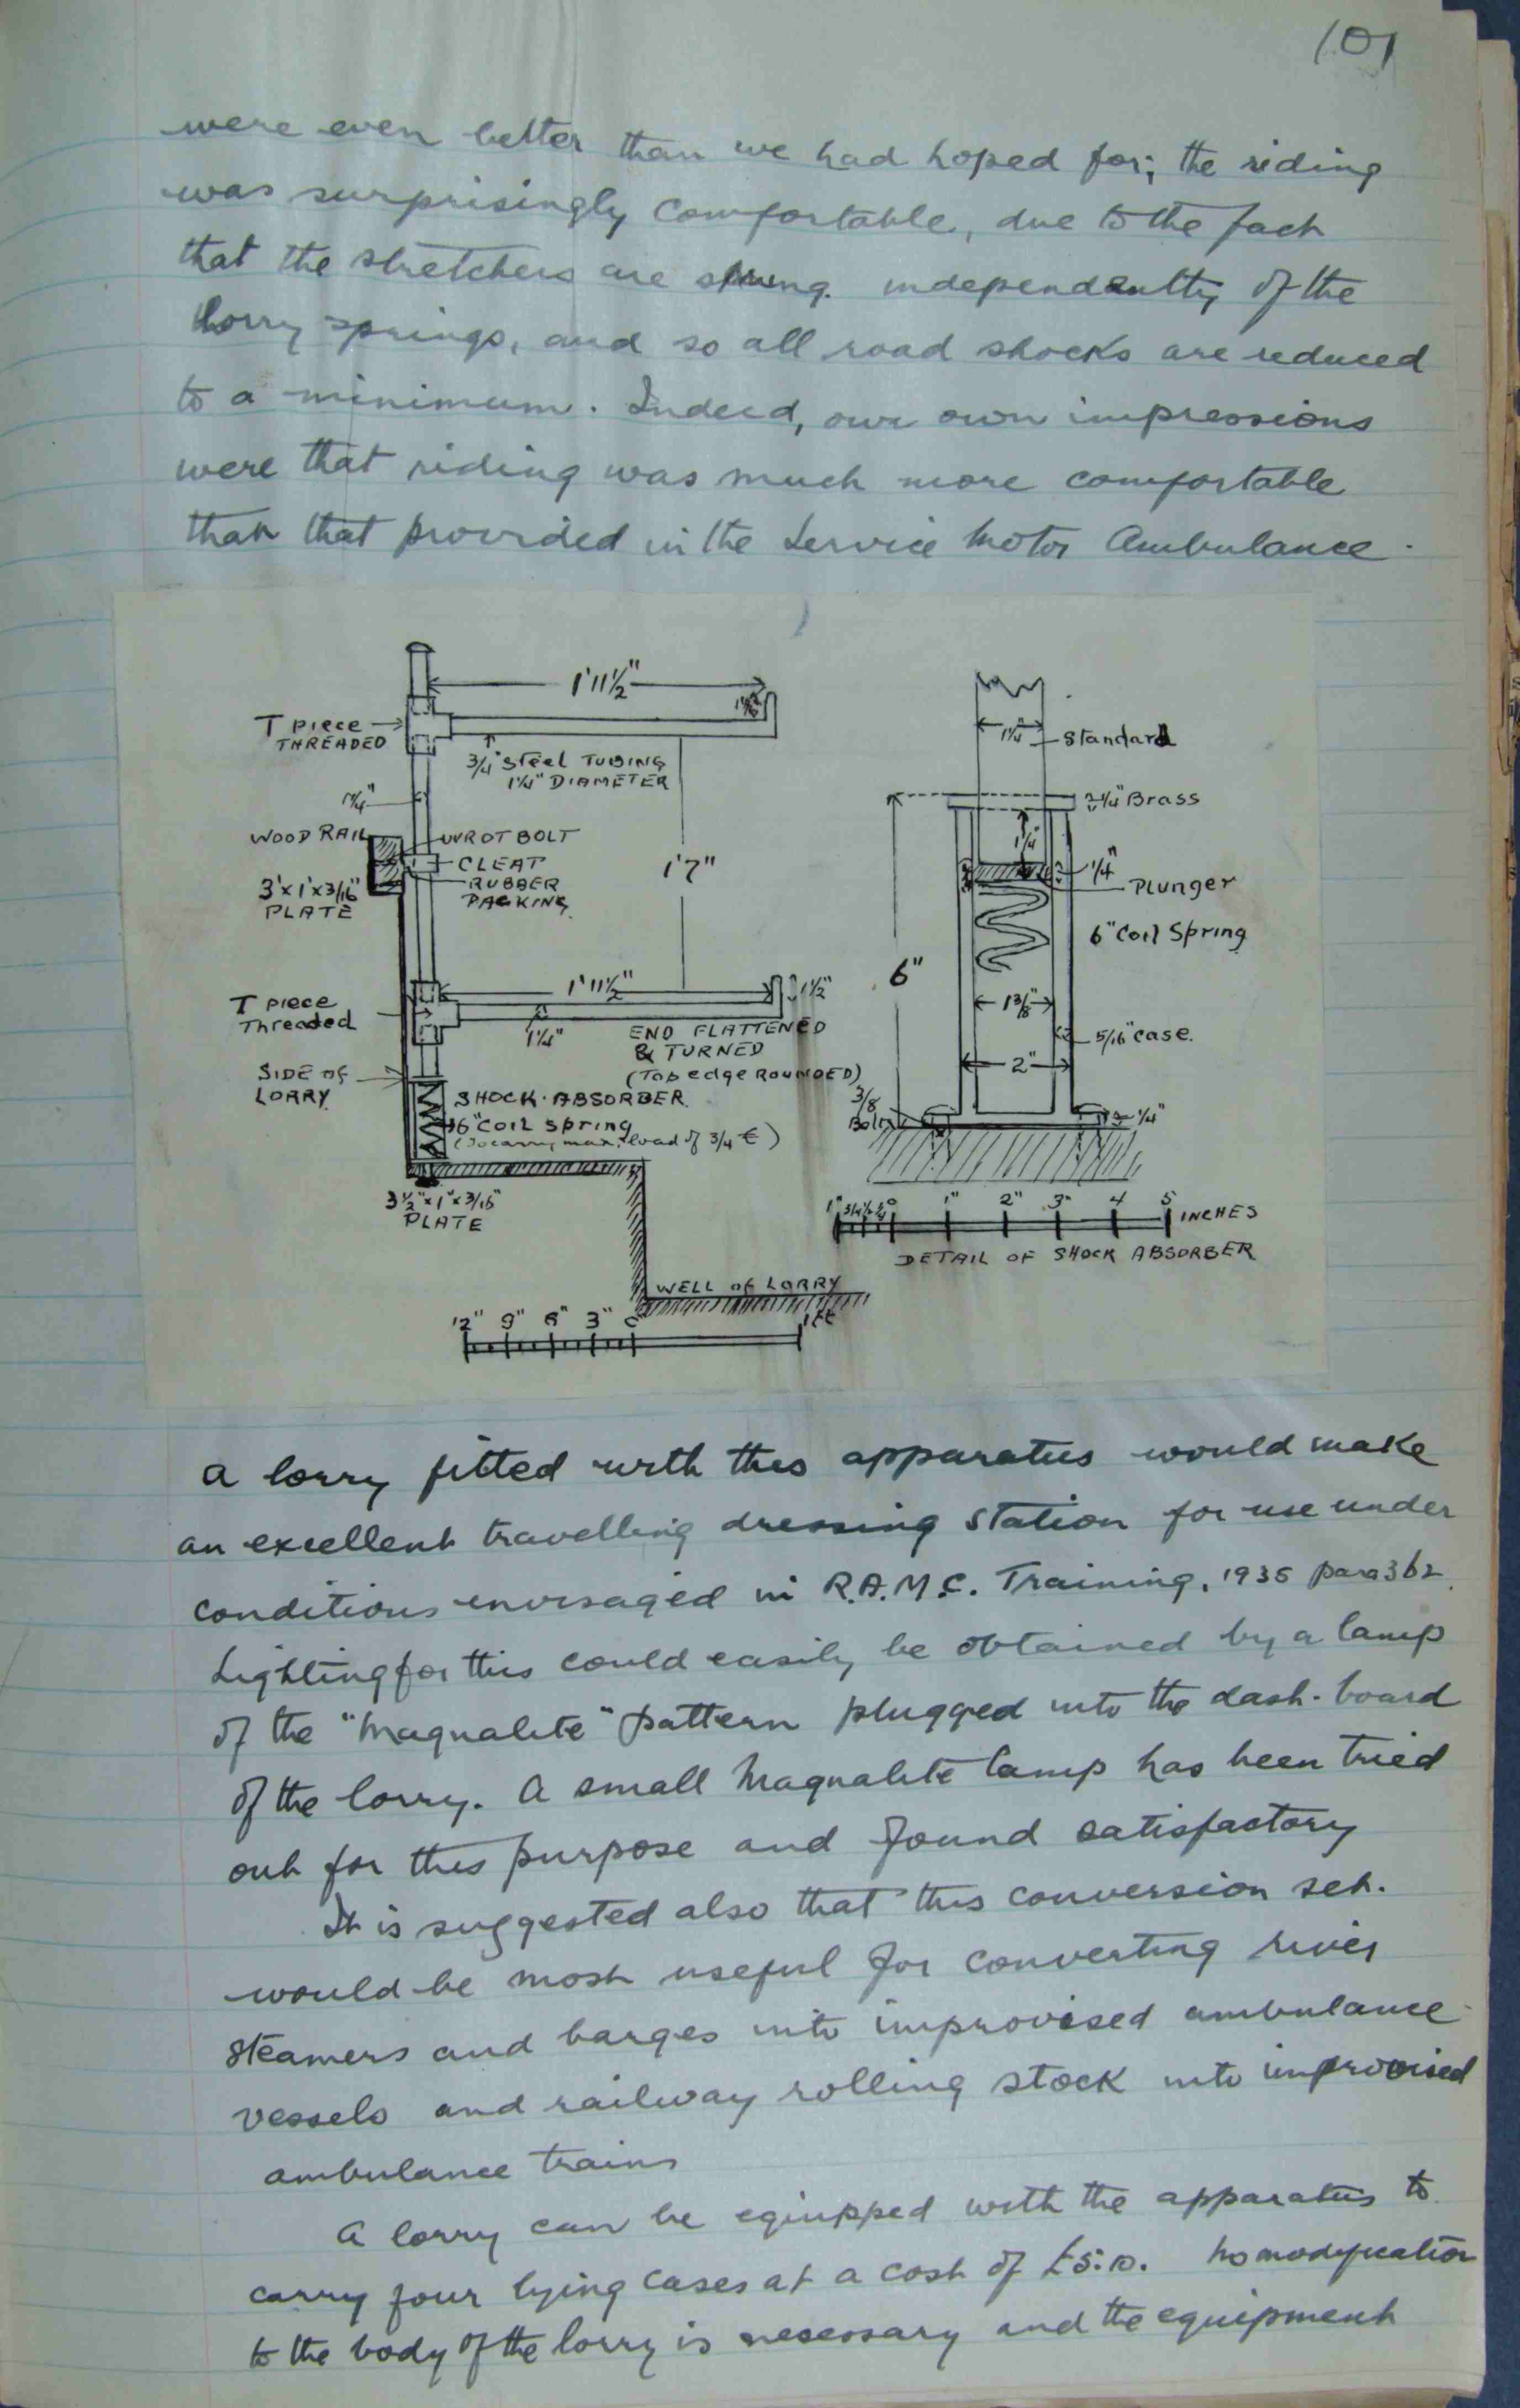 101
were even better than we had hoped for; the riding
was surprisingly comfortable, due to the fact
that the stretchers are slung independently of the
lorry springs, and so all road shocks are reduced
to a minimum. Indeed, our own impressions
were that riding was much more comfortable
than that provided in the Service Motor Ambulance.
1'11½"
1½"
T PIECE
THREADED
3/4" Steel TUBING
1¼" DIAMETER
1¼"
WOOD RAIL
WROT BOLT
CLEAT
RUBBER
PACKING
3"x1"x3/16"
PLATE
1'7"
1'11½"
1½"
T piece
Threaded
1¼"
END FLATTENED
& TURNED
(Top edge ROUNDED)
SIDE OF
LORRY
SHOCK ABSORBER
6" COIL Spring
(To carry max. load of 3/4 c)
3½"x1"x3/16"
PLATE
WELL of LORRY
12" 9" 6" 3" 0" 1 Ft
1¼"
Standard
¼" Brass
1¼"
¼"
Plunger
6" Coil Spring
6"
1⅜"
5/16" case.
2"
3/8
Bolt
¼"
1" 3/4 ½ ¼ 0 1" 2" 3" 4 5 INCHES
DETAIL OF SHOCK ABSORBER
A lorry fitted with this apparatus would make
an excellent travelling dressing station for use under
conditions envisaged in R.A.M.C. Training, 1935 para 362.
Lighting for this could easily be obtained by a lamp
of the "Magnalite" pattern plugged into the dash-board
of the lorry. A small Magnalite lamp has been tried
out for this purpose and found satisfactory
It is suggested also that this conversion set.
would be most useful for converting river
steamers and barges into improvised ambulance
vessels and railway rolling stock into improvised
ambulance trains
A lorry can be equipped with the apparatus to
carry four lying cases at a cost of £5.10. No modification
to the body of the lorry is necessary and the equipment